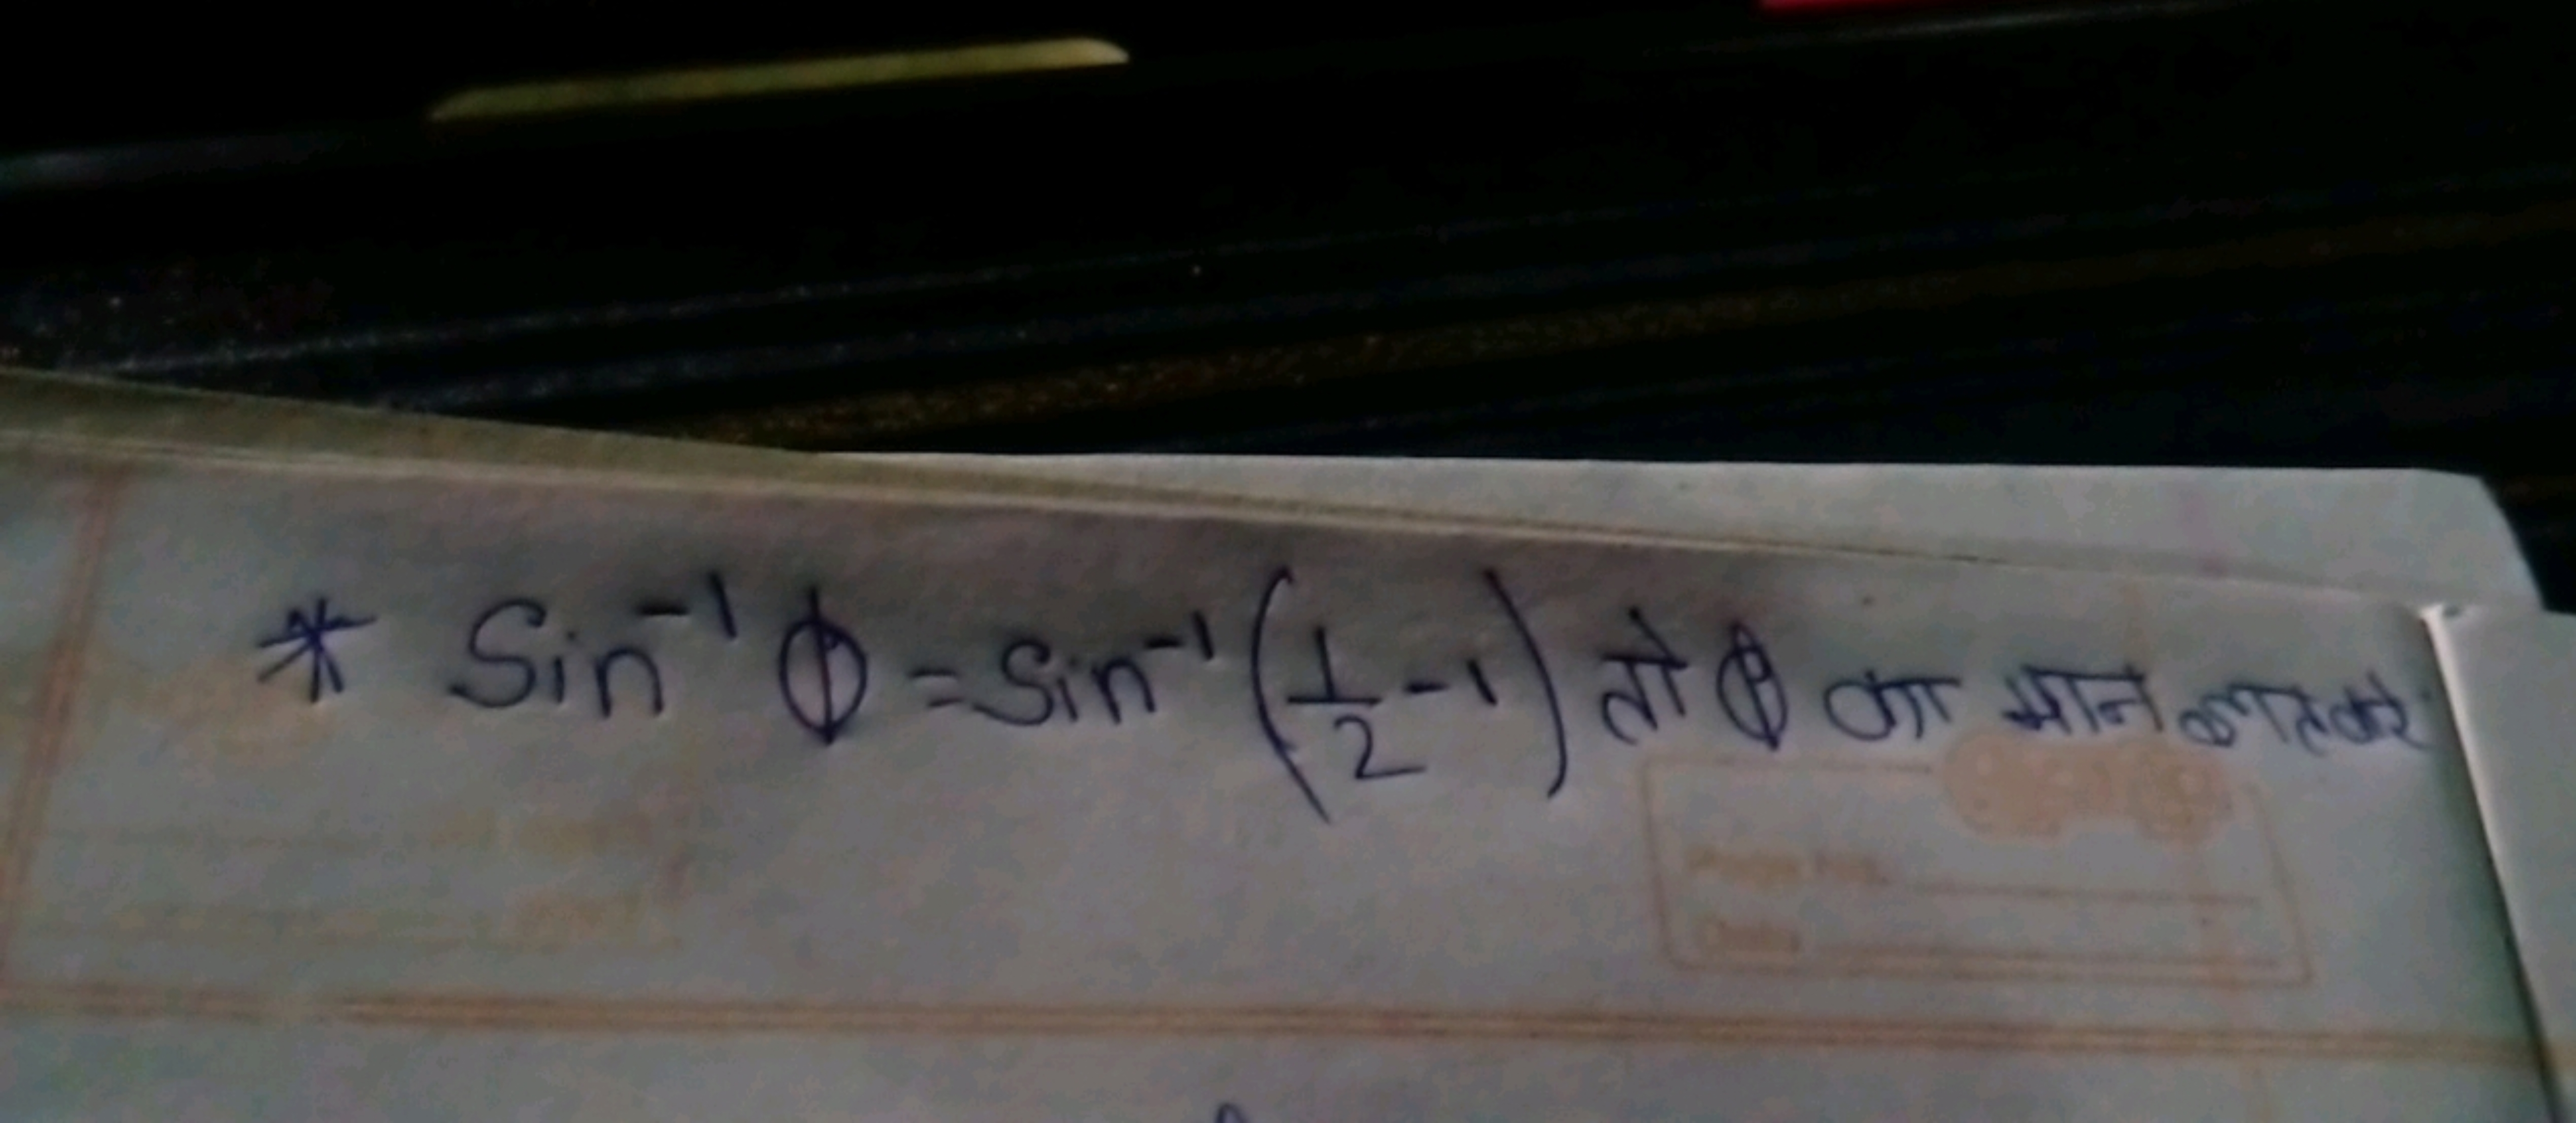 * Sin⁻¹ φ = Sin⁻¹ (1/2 - 1) तो φ का मान ज्ञात करे
Page No.
Date